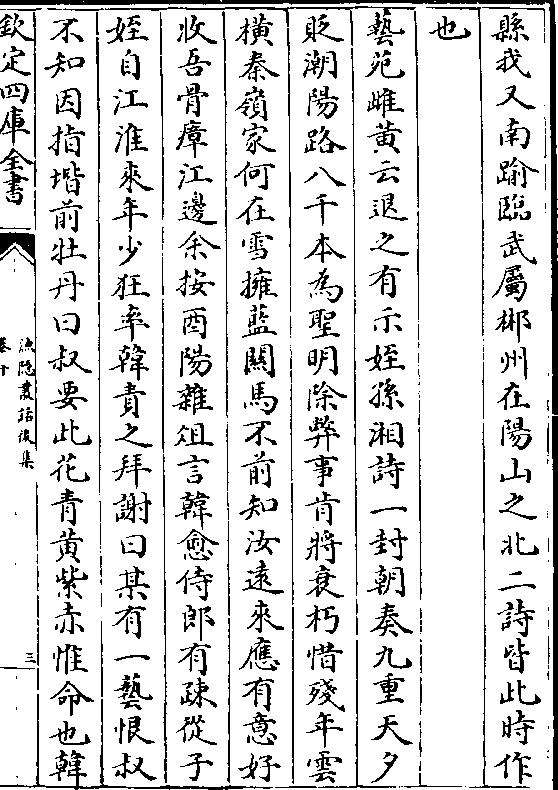 縣我又南踰臨武屬郴州在陽山之北二詩皆此時作
也
藝苑雌黃云退之有示姪孫湘詩一封朝奏九重天夕
貶潮陽路八千本為聖明除弊事肯將衰朽惜殘年雲
橫秦嶺家何在雪擁藍關馬不前知汝逺來應有意好
收吾骨瘴江邊余按酉陽雜俎言韓愈侍郎有疎從子
姪自江淮來年少狂率韓責之拜謝曰某有一藝恨叔
不知因指堦前牡丹曰叔要此花青黄紫赤惟命也韓
欽定四庫全書
漁隱叢話後集
卷十
三